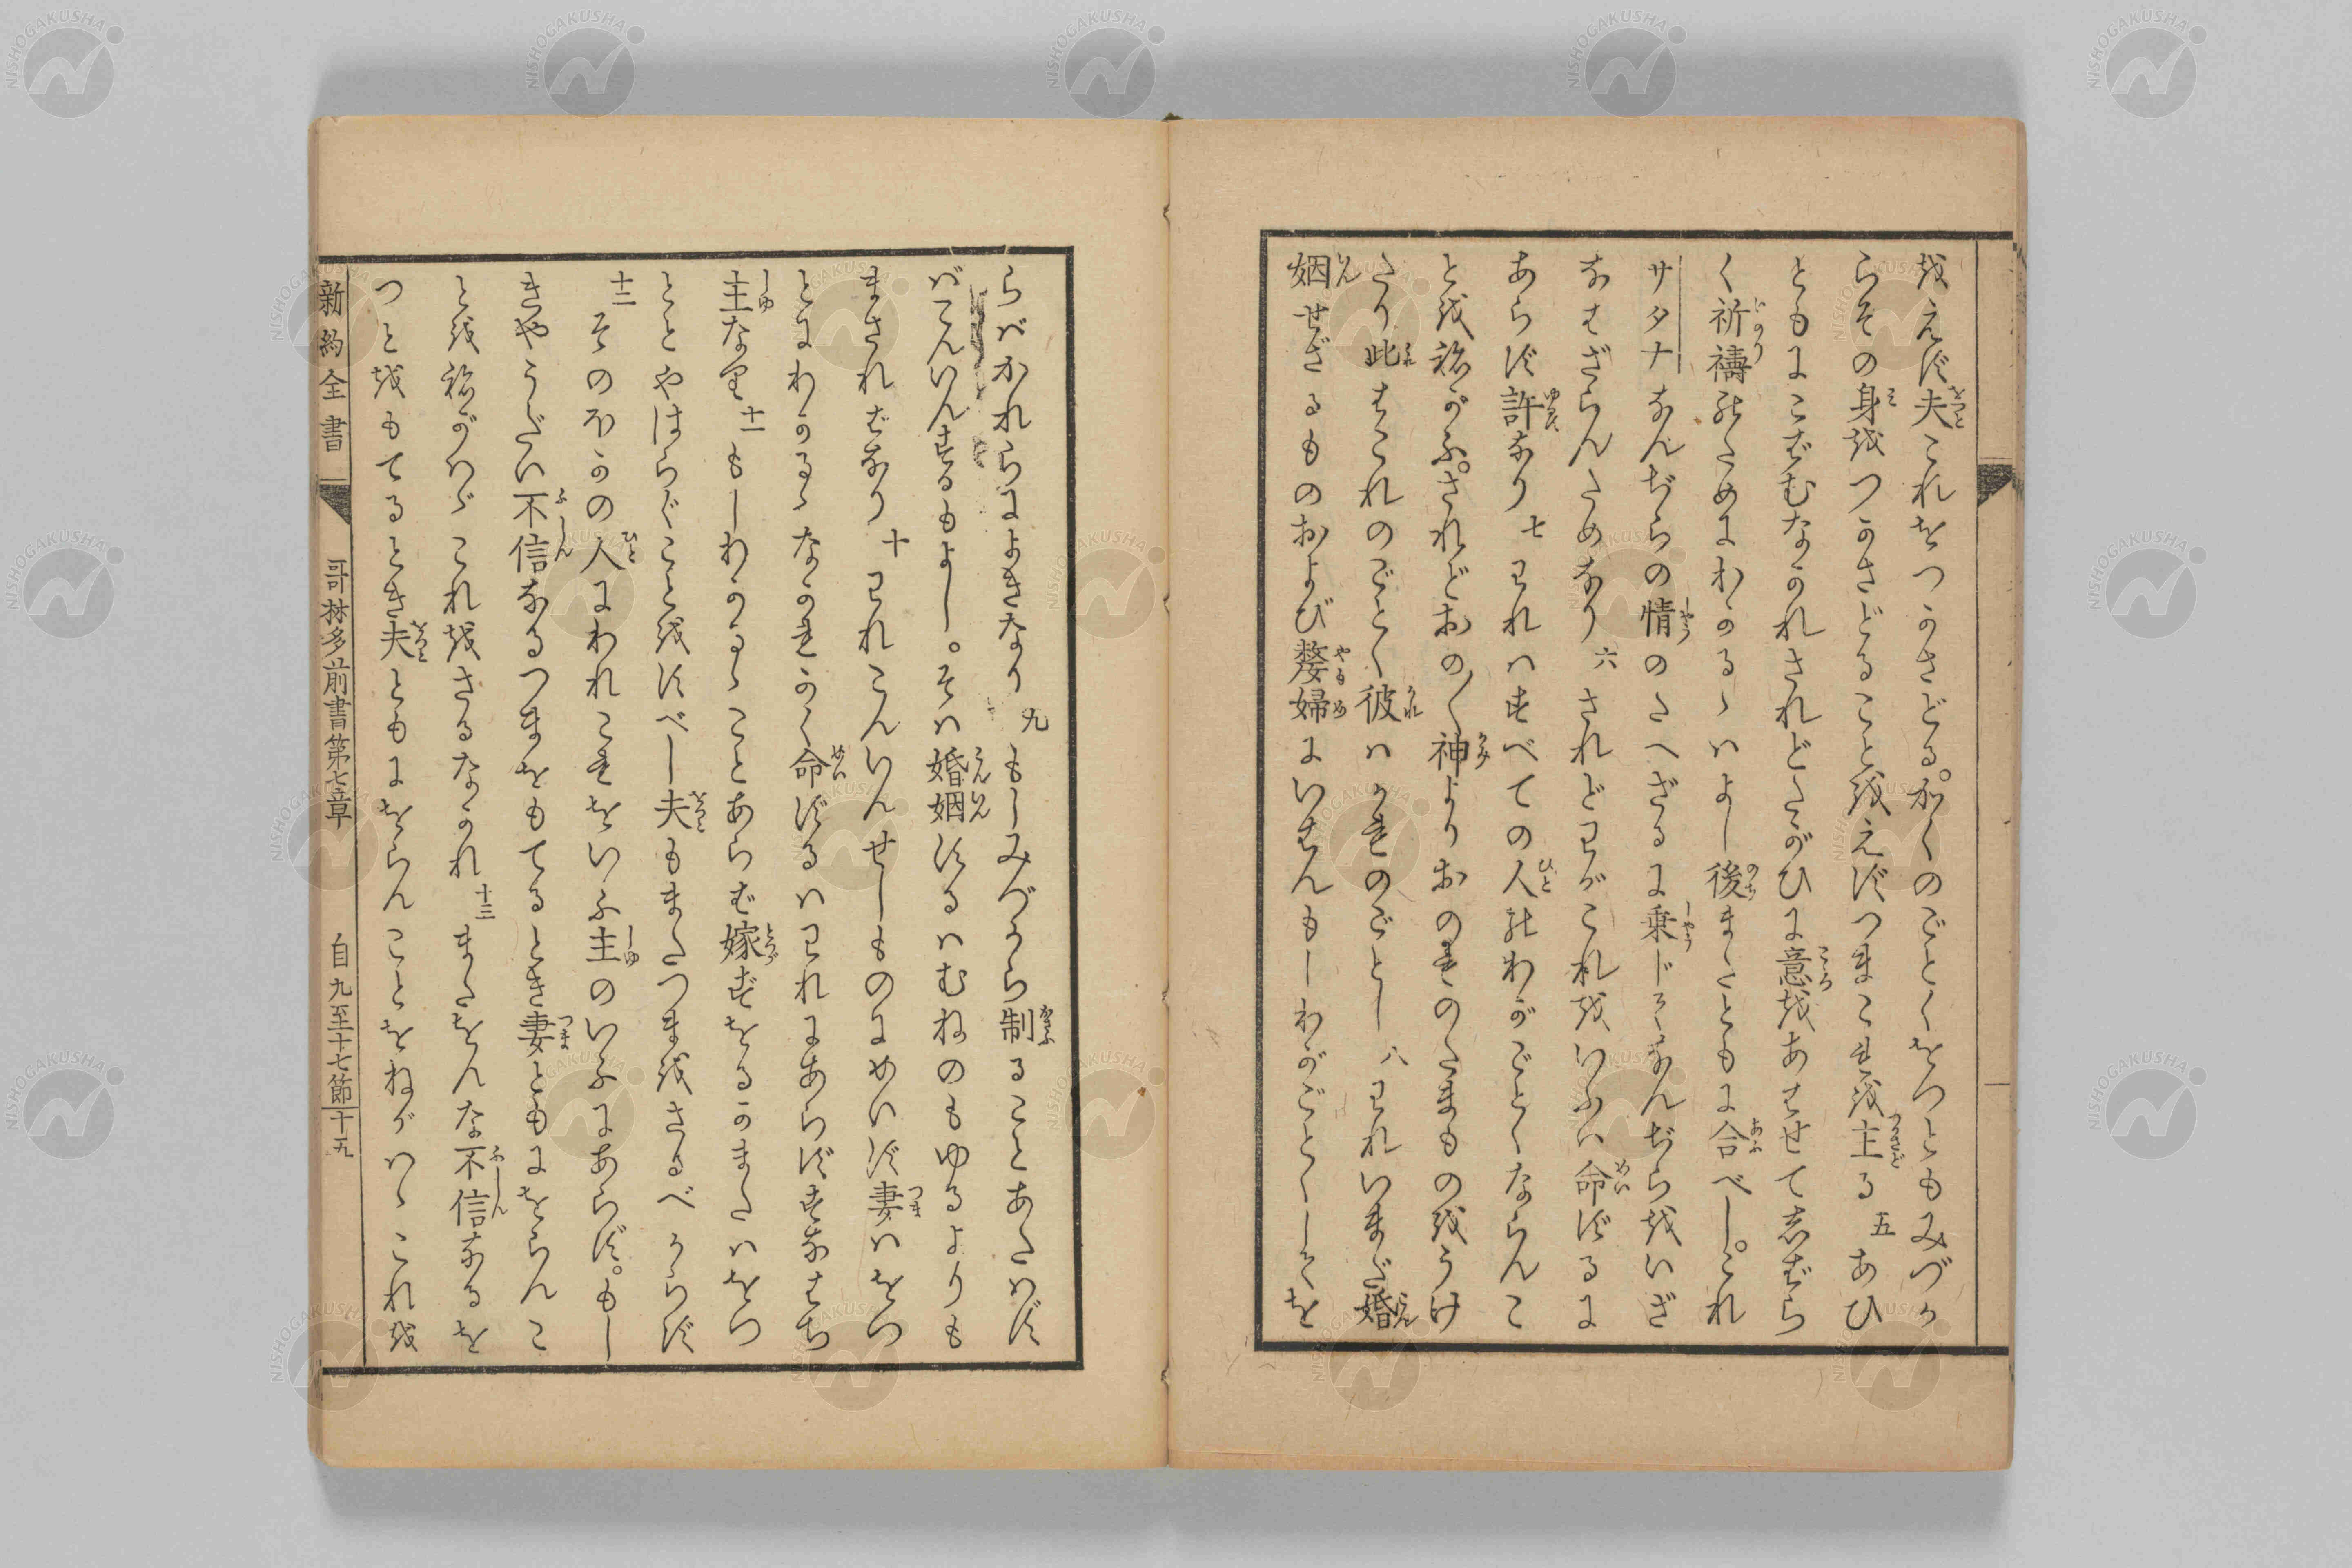 をえず夫これをつかさどる。かくのごとくをつともみづか
らその身をつかさどることをえずつまこれを主る 五 あひ
ともにこばむなかれされどたがひに意をあはせてしばら
く祈禱のためにわかるゝはよし後またともに合べし。これ
サタナなんぢらの情のたへざるに乗じてなんぢらをいざ
なはざらんためなり 六 されどわがこれをいふハ命ずるに
あらず許なり 七 われハすべての人のわがごとくならんこ
とをねがふ。されどおの〳〵神よりおのれのたまものをうけ
たり此はこれのごとく彼ハかれのごとし 八 われいまだ婚
姻せざるものおよび嫠婦にいはんもしわがごとくしてを
らバかれらによきなり 九 もしみづから制ることあたハず
バこんいんするもよし。そハ婚姻するハむねのもゆるよりも
まさればなり 十 われこんいんせしものにめいず妻ハをつ
とにわかるゝなかれかく命ずるハわれにあらずすなはち
主なり 十一 もしわかるゝことあらば嫁ずをるかまたハをつ
ととやはらぐことをすべし夫もまたつまをさるべからず
十二 そのほかの人にわれこれをいふ主のいふにあらず。もし
きやうだい不信なるつまをもてるとき妻ともにをらんこ
とをねがハゞこれをさるなかれ 十三 またをんな不信なるを
つとをもてるとき夫ともにをらんことをねがハゝこれを
新約全書 哥林多前書第七章 自九至十七節 十九
サタナ
NISHOGAKUSHA